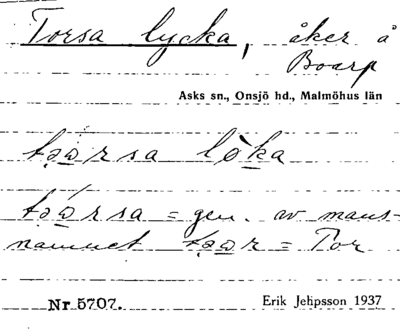 Torsa lycka, åker å
Boarp
Asks sn., Onsjö hd., Malmöhus län
tşa̱rsa lo̱ka
tşa̱rsa = gen. av mans-
namnet tşa̱r = Tor
Nr 5707. Erik Jeppsson 1937